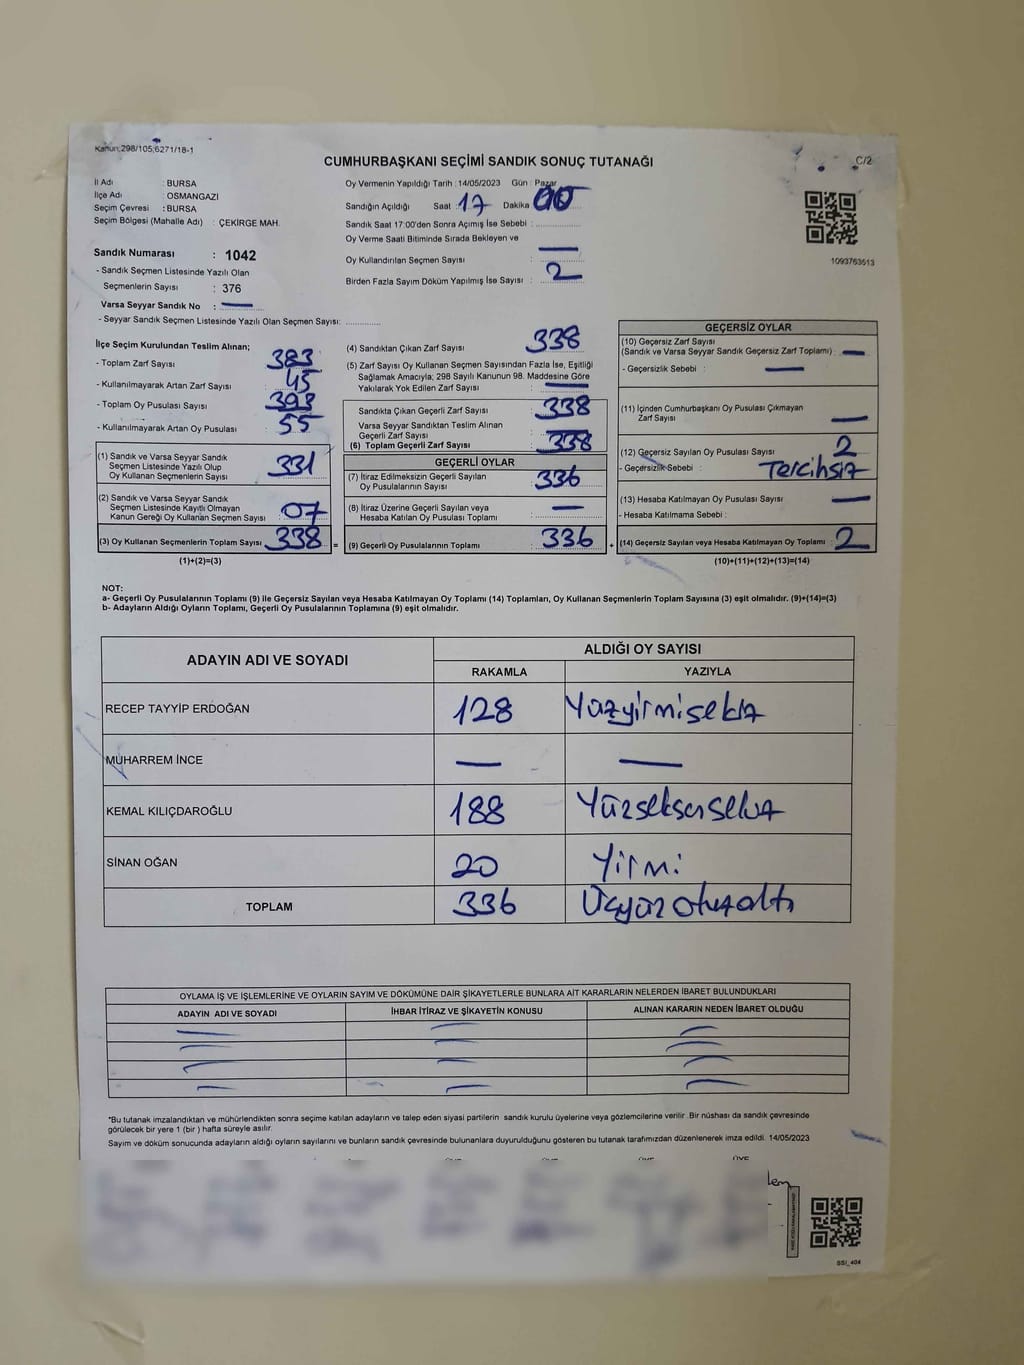 Kanun;298/105;6271/18-1
C/2
CUMHURBAŞKANI SEÇİMİ SANDIK SONUÇ TUTANAĞI
İl Adı : BURSA
İlçe Adı : OSMANGAZİ
Seçim Çevresi : BURSA
Seçim Bölgesi (Mahalle Adı) : ÇEKİRGE MAH.
Sandık Numarası : 1042
- Sandık Seçmen Listesinde Yazılı Olan
Seçmenlerin Sayısı : 376
Varsa Seyyar Sandık No : —
- Seyyar Sandık Seçmen Listesinde Yazılı Olan Seçmen Sayısı:
Oy Vermenin Yapıldığı Tarih :14/05/2023 Gün : Pazar
Sandığın Açıldığı Saat : 17 Dakika 00
Sandık Saat 17:00'den Sonra Açımış İse Sebebi :
Oy Verme Saati Bitiminde Sırada Bekleyen ve
Oy Kullandırılan Seçmen Sayısı : —
Birden Fazla Sayım Döküm Yapılmış İse Sayısı : 2
1093763513
İlçe Seçim Kurulundan Teslim Alınan;
- Toplam Zarf Sayısı 383
- Kullanılmayarak Artan Zarf Sayısı 45
- Toplam Oy Pusulası Sayısı 393
- Kullanılmayarak Artan Oy Pusulası 55
(1) Sandık ve Varsa Seyyar Sandık
Seçmen Listesinde Yazılı Olup
Oy Kullanan Seçmenlerin Sayısı 331
(2) Sandık ve Varsa Seyyar Sandık
Seçmen Listesinde Kayıtlı Olmayan
Kanun Gereği Oy Kullanan Seçmen Sayısı 07
(3) Oy Kullanan Seçmenlerin Toplam Sayısı 338 =
(1)+(2)=(3)
(4) Sandıktan Çıkan Zarf Sayısı 338
(5) Zarf Sayısı Oy Kullanan Seçmen Sayısından Fazla İse, Eşitliği
Sağlamak Amacıyla; 298 Sayılı Kanunun 98. Maddesine Göre
Yakılarak Yok Edilen Zarf Sayısı : —
Sandıkta Çıkan Geçerli Zarf Sayısı 338
Varsa Seyyar Sandıktan Teslim Alınan
Geçerli Zarf Sayısı : —
(6) Toplam Geçerli Zarf Sayısı 338
GEÇERLİ OYLAR
(7) İtiraz Edilmeksizin Geçerli Sayılan
Oy Pusulalarının Sayısı 336
(8) İtiraz Üzerine Geçerli Sayılan veya
Hesaba Katılan Oy Pusulası Toplamı —
(9) Geçerli Oy Pusulalarının Toplamı 336 +
GEÇERSİZ OYLAR
(10) Geçersiz Zarf Sayısı
(Sandık ve Varsa Seyyar Sandık Geçersiz Zarf Toplamı) : —
- Geçersizlik Sebebi : —
(11) İçinden Cumhurbaşkanı Oy Pusulası Çıkmayan
Zarf Sayısı —
(12) Geçersiz Sayılan Oy Pusulası Sayısı 2
- Geçersizlik Sebebi : Tercihsiz
(13) Hesaba Katılmayan Oy Pusulası Sayısı —
- Hesaba Katılmama Sebebi :
(14) Geçersiz Sayılan veya Hesaba Katılmayan Oy Toplamı : 2
(10)+(11)+(12)+(13)=(14)
NOT:
a- Geçerli Oy Pusulalarının Toplamı (9) ile Geçersiz Sayılan veya Hesaba Katılmayan Oy Toplamı (14) Toplamları, Oy Kullanan Seçmenlerin Toplam Sayısına (3) eşit olmalıdır. (9)+(14)=(3)
b- Adayların Aldığı Oyların Toplamı, Geçerli Oy Pusulalarının Toplamına (9) eşit olmalıdır.
ADAYIN ADI VE SOYADI ALDIĞI OY SAYISI
RAKAMLA YAZIYLA
RECEP TAYYİP ERDOĞAN 128 Yüzyirmisekiz
MUHARREM İNCE — —
KEMAL KILIÇDAROĞLU 188 Yüzseksensekiz
SİNAN OĞAN 20 Yirmi
TOPLAM 336 Üçyüzotuzaltı
OYLAMA İŞ VE İŞLEMLERİNE VE OYLARIN SAYIM VE DÖKÜMÜNE DAİR ŞİKAYETLERLE BUNLARA AİT KARARLARIN NELERDEN İBARET BULUNDUKLARI
ADAYIN ADI VE SOYADI İHBAR İTİRAZ VE ŞİKAYETİN KONUSU ALINAN KARARIN NEDEN İBARET OLDUĞU
*Bu tutanak imzalandıktan ve mühürlendikten sonra seçime katılan adayların ve talep eden siyasi partilerin sandık kurulu üyelerine veya gözlemcilerine verilir. Bir nüshası da sandık çevresinde
görülecek bir yere 1 (bir ) hafta süreyle asılır.
Sayım ve döküm sonucunda adayların aldığı oyların sayılarını ve bunların sandık çevresinde bulunanlara duyurulduğunu gösteren bu tutanak tarafımızdan düzenlenerek imza edildi. 14/05/2023
SSI_404